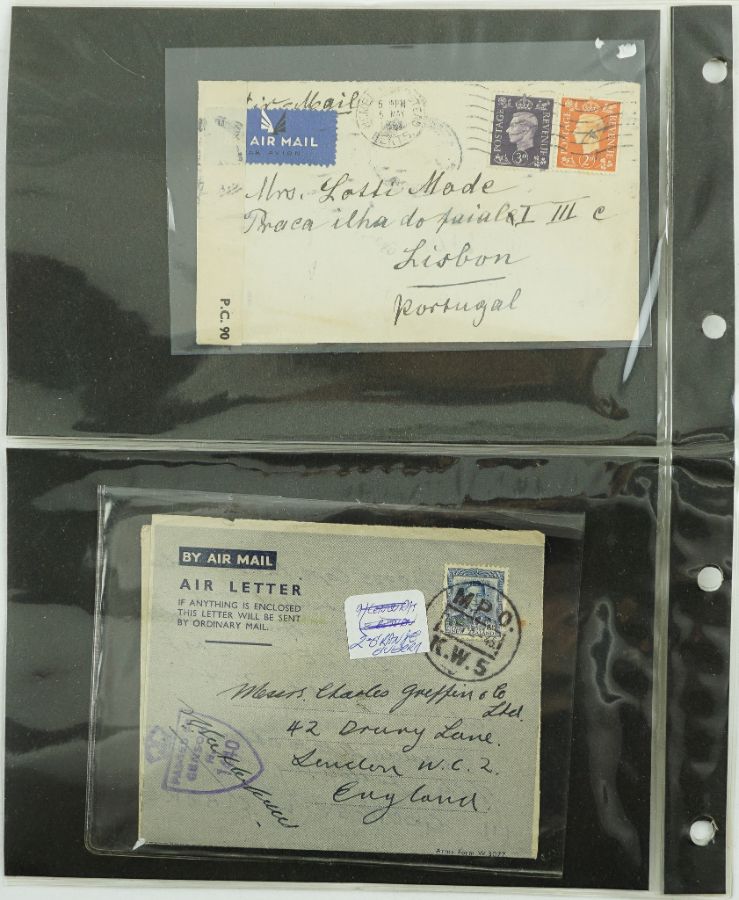 Air Mail
AIR MAIL
PAR AVION
5 PM
5 MAY
HERTS.
POSTAGE
REVENUE
3D
POSTAGE
REVENUE
2D
Mrs. Lotti Mode
Praca ilha do faial I III c
Lisbon
Portugal
P.C. 90
BY AIR MAIL
AIR LETTER
IF ANYTHING IS ENCLOSED
THIS LETTER WILL BE SENT
BY ORDINARY MAIL.
M.P.O.
K.W.5
Messrs. Charles Griffin & Co
Ltd.
42 Drury Lane.
London W.C.2.
England
PASSED
CENSOR
Army Form W.3077